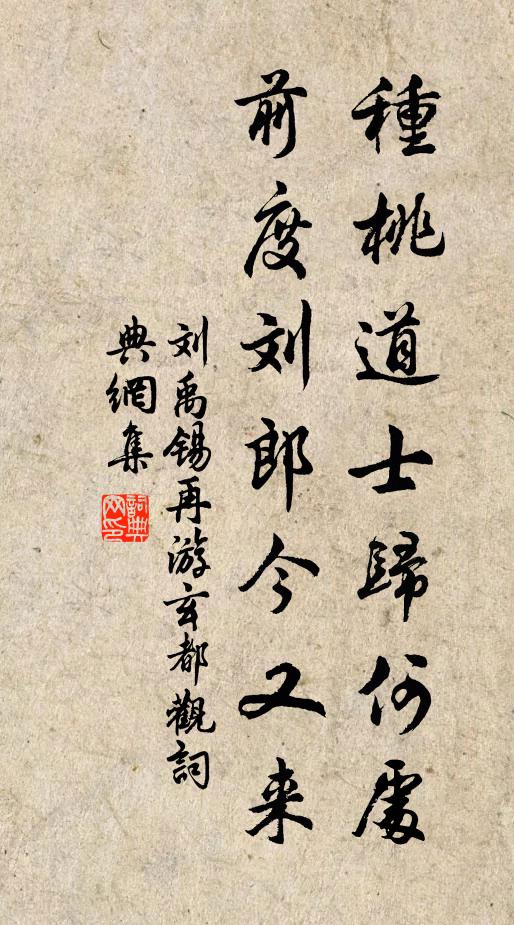 種桃道士歸何處
前度刘郎今又来
刘禹锡再游玄都觀詞
典網集
詞典網印